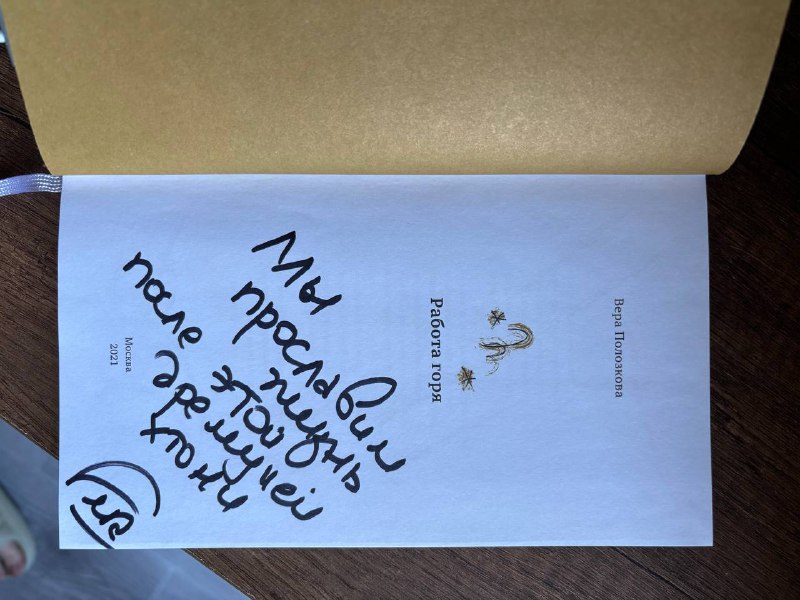 Вера Полозкова
Работа горя
Мы
прославим
жизнь
после этой
дремучей
хтони
Москва
2021